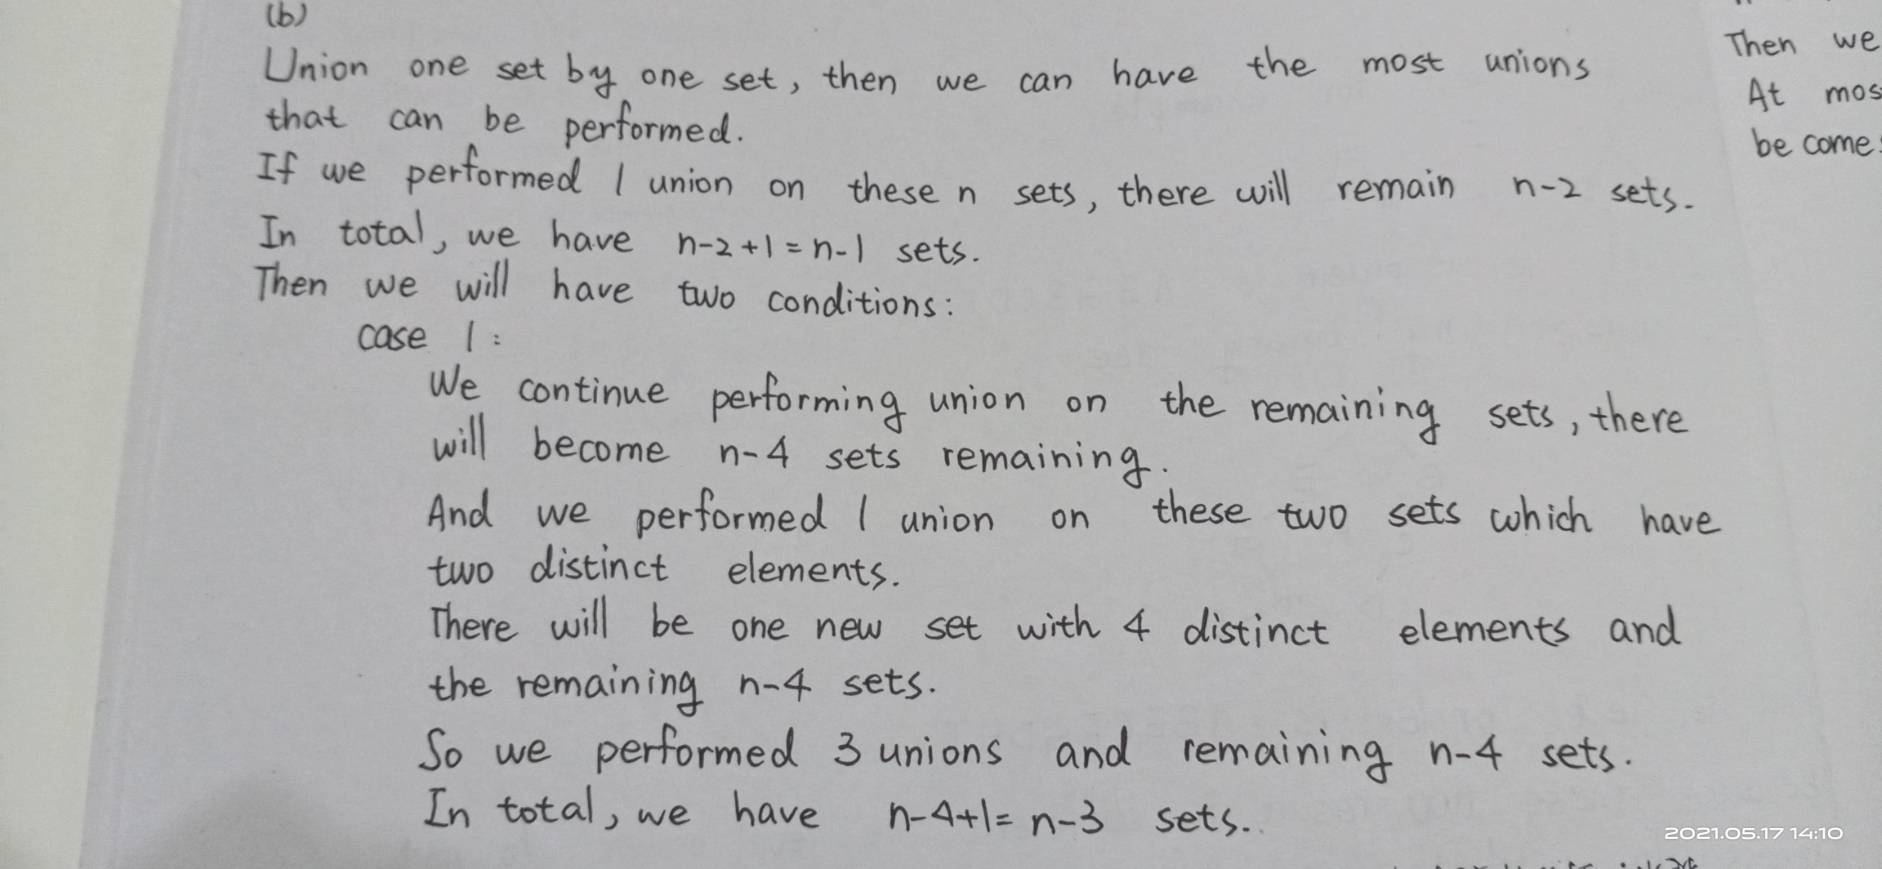 (b)
Union one set by one set, then we can have the most unions
that can be performed.
If we performed 1 union on these n sets, there will remain n-2 sets.
In total, we have n-2+1=n-1 sets.
Then we will have two conditions:
case 1:
We continue performing union on the remaining sets, there
will become n-4 sets remaining.
And we performed 1 union on these two sets which have
two distinct elements.
There will be one new set with 4 distinct elements and
the remaining n-4 sets.
So we performed 3 unions and remaining n-4 sets.
In total, we have n-4+1=n-3 sets.
Then we
At mos
be come
2021.05.17 14:10